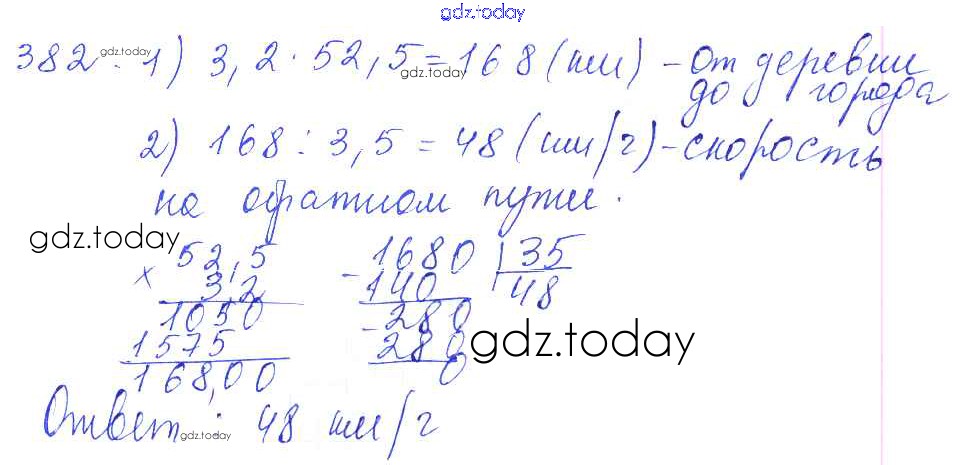 gdz.today
382. gdz.today 1) 3,2 · 52,5 = 168 (км) - от деревни
gdz.today до города
2) 168 : 3,5 = 48 (км/ч) - скорость
на обратном пути.
gdz.today
× 52,5 - 1680 | 35
3,2 140 48
1050 - 280
1575 280 gdz.today
168,00 0
Ответ: gdz.today 48 км/ч